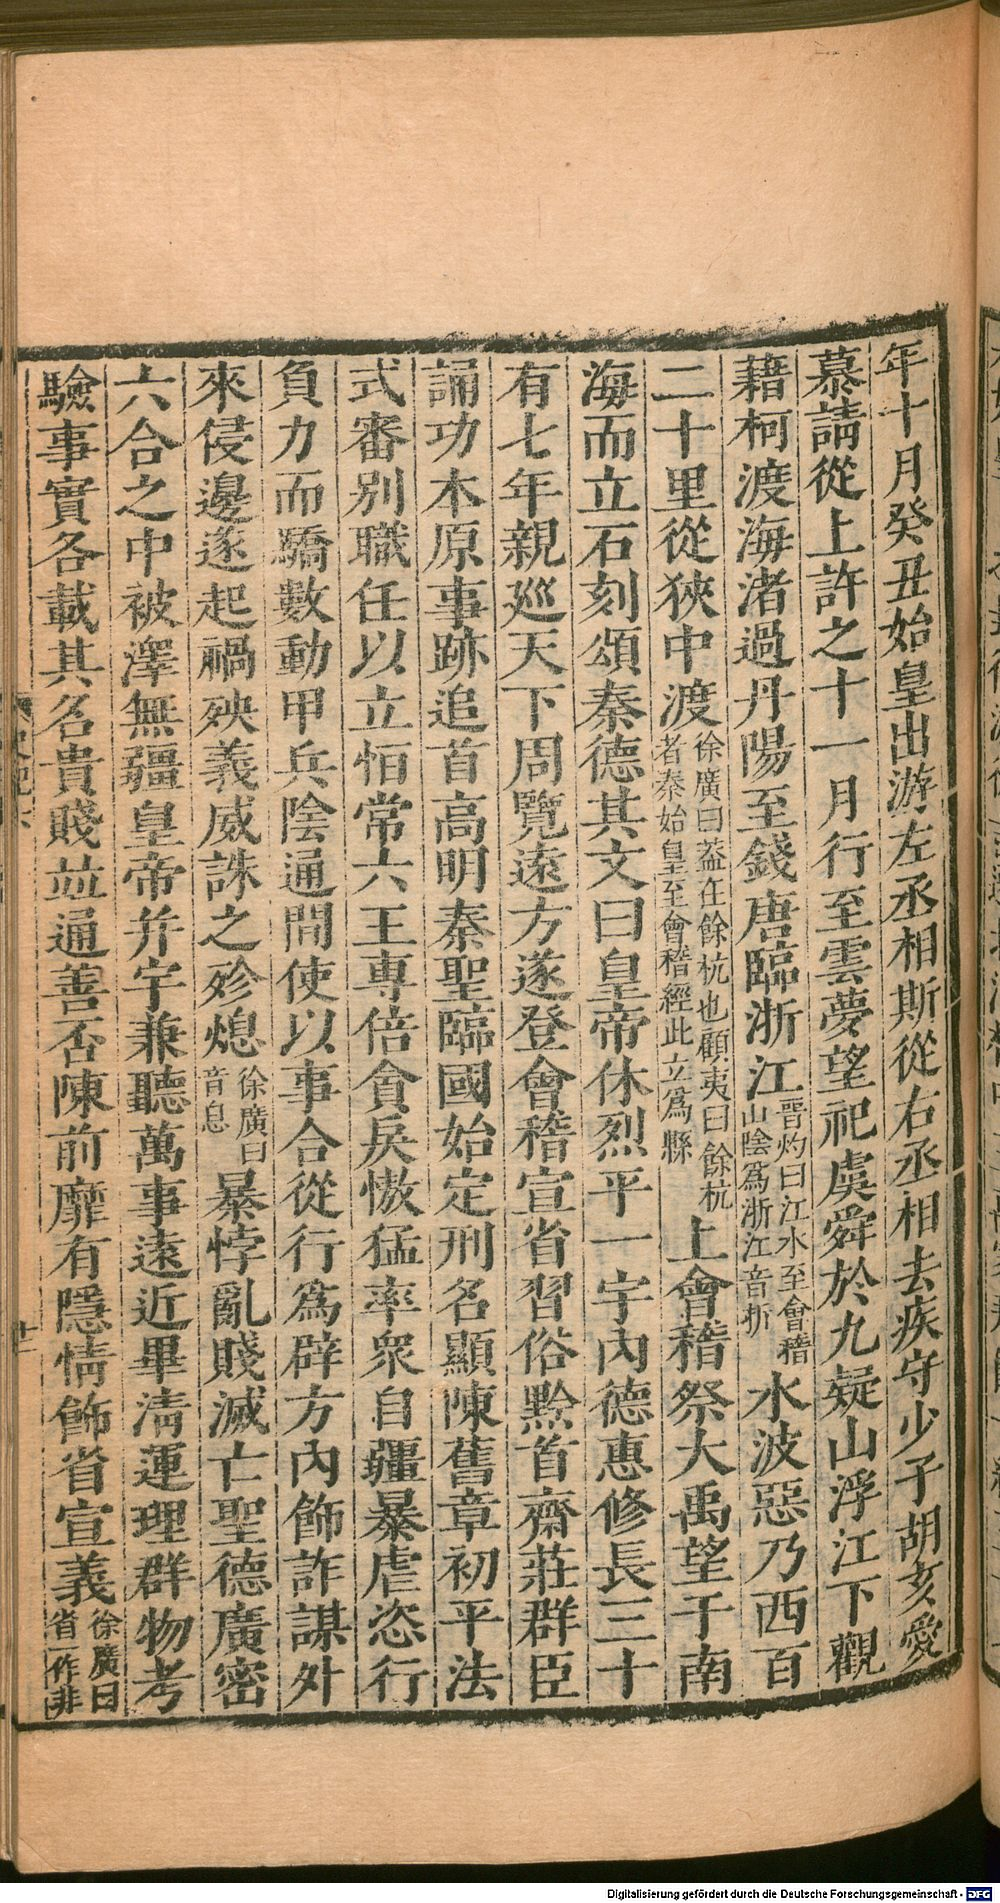 年十月癸丑始皇出游左丞相斯從右丞相去疾守少子胡亥愛
慕請從上許之十一月行至雲夢望祀虞舜於九疑山浮江下觀
藉柯渡海渚過丹陽至錢唐臨浙江晉灼曰江水至會稽山陰為浙江音折水波惡乃西百
二十里從狹中渡徐廣曰葢在餘杭也顧夷曰餘杭者秦始皇至會稽經此立為縣上會稽祭大禹望于南
海而立石刻頌秦德其文曰皇帝休烈平一宇內德惠修長三十
有七年親巡天下周覽遠方遂登會稽宣省習俗黔首齋莊群臣
誦功本原事跡追首高明秦聖臨國始定刑名顯陳舊章初平法
式審別職任以立恒常六王專倍貪戾慠猛率眾自彊暴虐恣行
負力而驕數動甲兵陰通間使以事合從行為辟方內飾詐謀外
來侵邊遂起禍殃義威誅之殄熄徐廣曰音息暴悖亂賊滅亡聖德廣密
六合之中被澤無疆皇帝并宇兼聽萬事遠近畢清運理群物考
驗事實各載其名貴賤並通善否陳前靡有隱情飾省宣義徐廣曰省一作非
Digitalisierung gefördert durch die Deutsche Forschungsgemeinschaft - DFG